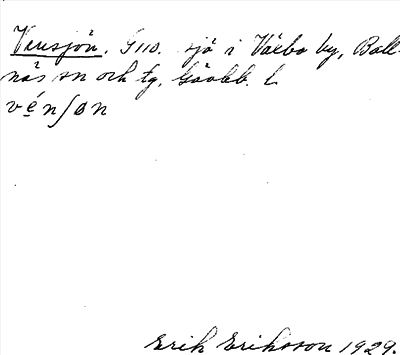 Vensjön. G110. sjö i Växbo by, Boll-
näs sn och tg, Gävlb. L.
v é n ʃ ø n
Erik Eriksson 1929.